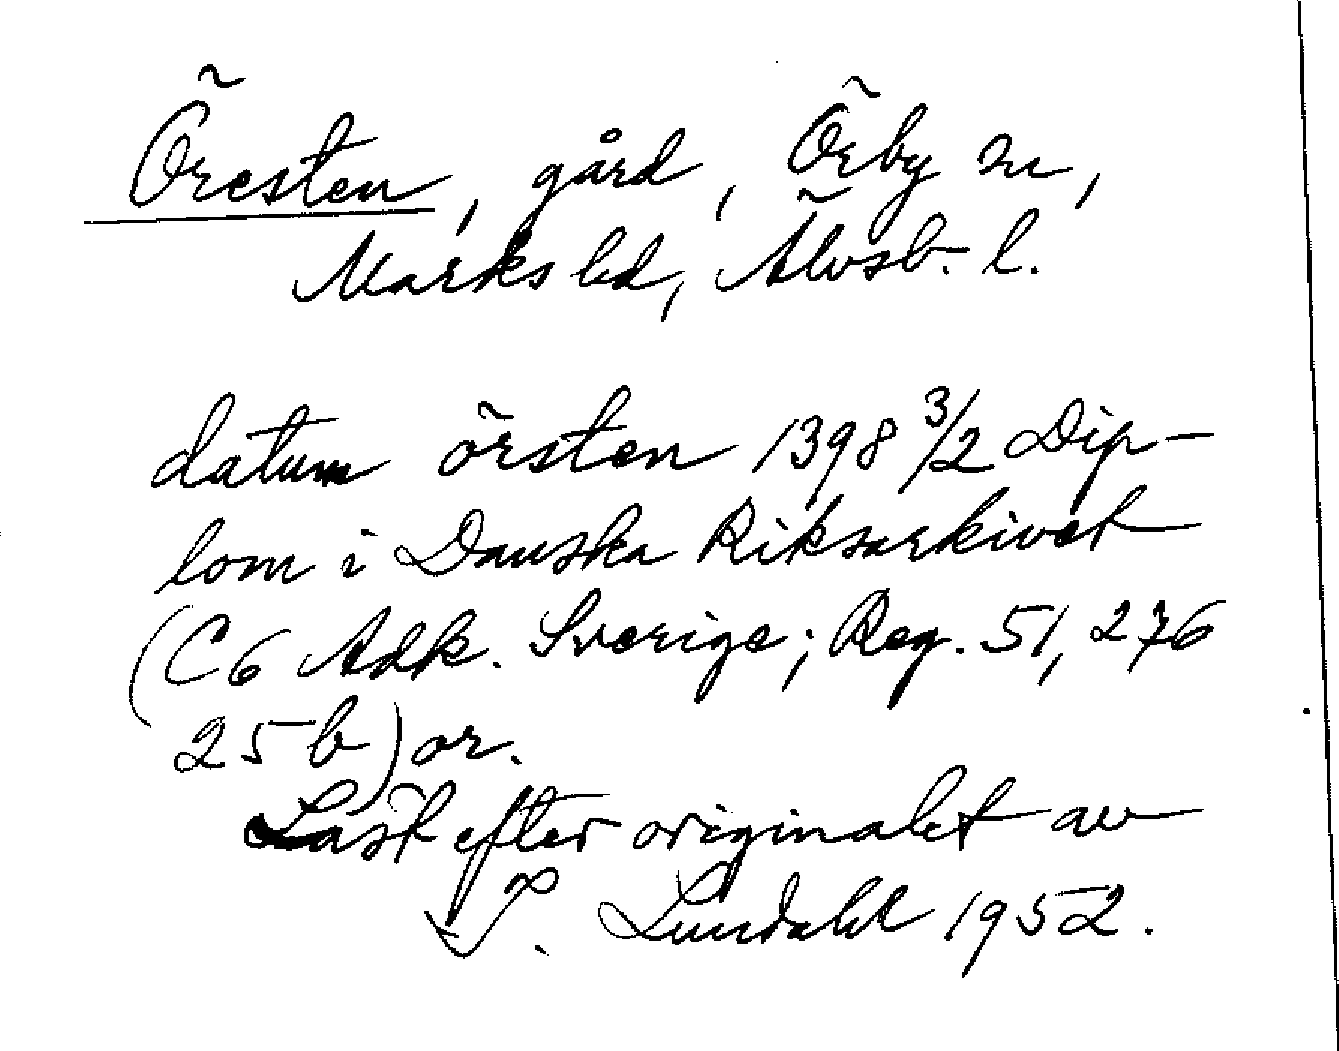 Öresten, gård, Örby sn,
Marks hd, Älvsb. l.
datum örsten 1398 3/2 Dip-
lom i Danska Riksarkivet
(C6 Adk. Sverige; Reg. 51, 276
25 b) or.
Läst efter originalet av
I. Lundahl 1952.